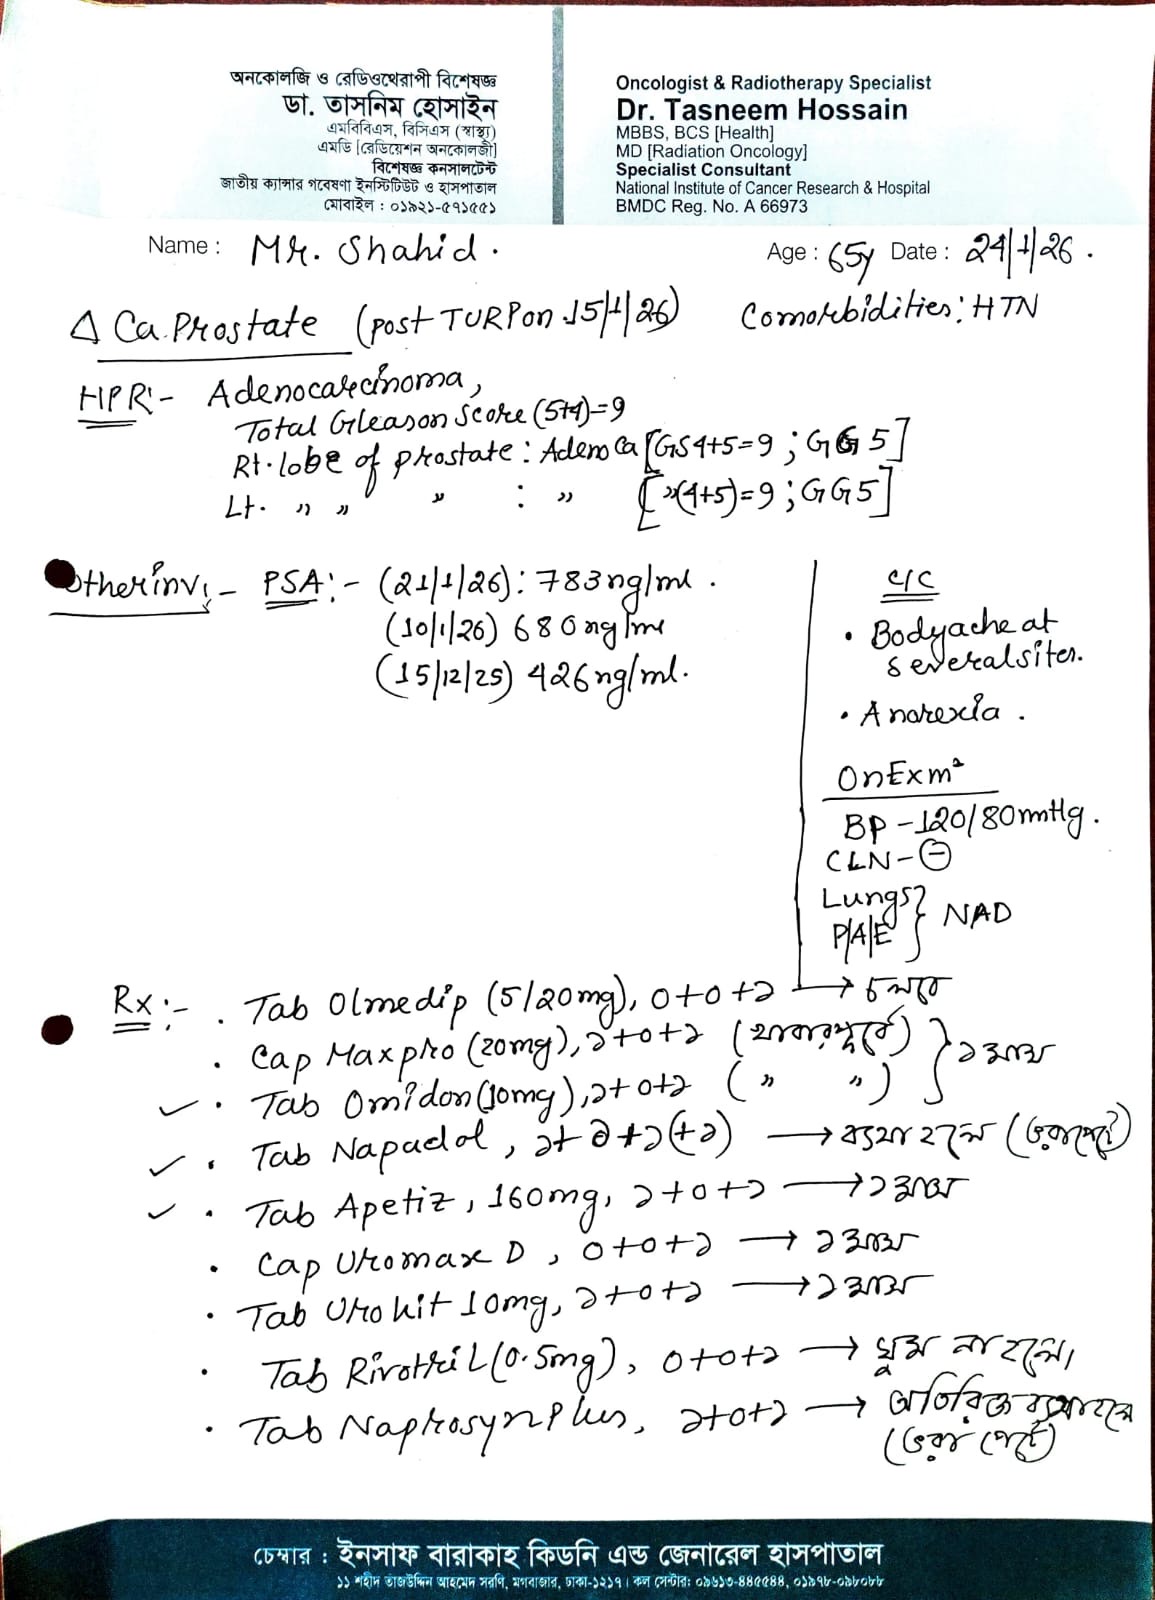 অনকোলজি ও রেডিওথেরাপী বিশেষজ্ঞ
ডা. তাসনিম হোসাইন
এমবিবিএস, বিসিএস (স্বাস্থ্য)
এমডি [রেডিয়েশন অনকোলজী]
বিশেষজ্ঞ কনসালটেন্ট
জাতীয় ক্যান্সার গবেষণা ইনস্টিটিউট ও হাসপাতাল
মোবাইল : ০১৯২১-৫৭১৫৫১
Oncologist & Radiotherapy Specialist
Dr. Tasneem Hossain
MBBS, BCS [Health]
MD [Radiation Oncology]
Specialist Consultant
National Institute of Cancer Research & Hospital
BMDC Reg. No. A 66973
Name : Mr. Shahid. Age : 65y Date : 24/1/26.
Δ Ca. Prostate (post TURP on 15/1/26) Comorbidities: HTN
HPR:- Adenocarcinoma,
Total Gleason Score (5+4)=9
Rt. lobe of prostate : Adeno Ca [GS 4+5=9 ; GG 5]
Lt. " " " : " ["(4+5)=9 ; GG5]
Other inv:- PSA:- (21/1/26) : 783 ng/ml.
(10/1/26) 680 ng/ml
(15/12/25) 426 ng/ml.
C/C
• Bodyache at
several sites.
• Anorexia.
On Exmⁿ
BP - 120/80 mmHg.
CLN - ⊖
Lungs }
P/A/E } NAD
Rx:- . Tab Olmedip (5/20mg), 0+0+১ → চলবে
. Cap Maxpro (20mg), ১+0+১ (খাবারপূর্বে) } ১ মাস
✓ . Tab Omidon (10mg), ১+0+১ ( " " )
✓ . Tab Napadol, ১+১+১(+১) → ব্যথা হলে (ভরাপেটে)
✓ . Tab Apetiz, 160mg, ১+0+১ → ১ মাস
. Cap Uromax D, 0+0+১ → ১ মাস
. Tab Urokit 10mg, ১+0+১ → ১ মাস
. Tab Rivotril (0.5mg), 0+0+১ → ঘুম না হলে।
. Tab Naprosyn Plus, ১+0+১ → অতিরিক্ত ব্যথা হলে
(ভরা পেটে)
চেম্বার : ইনসাফ বারাকাহ কিডনি এন্ড জেনারেল হাসপাতাল
১১ শহীদ তাজউদ্দিন আহমেদ সরণি, মগবাজার, ঢাকা-১২১৭। কল সেন্টার: ০৯৬১৩-৪৪৫৫৪৪, ০১৯৭৮-০৯৮০৮৮